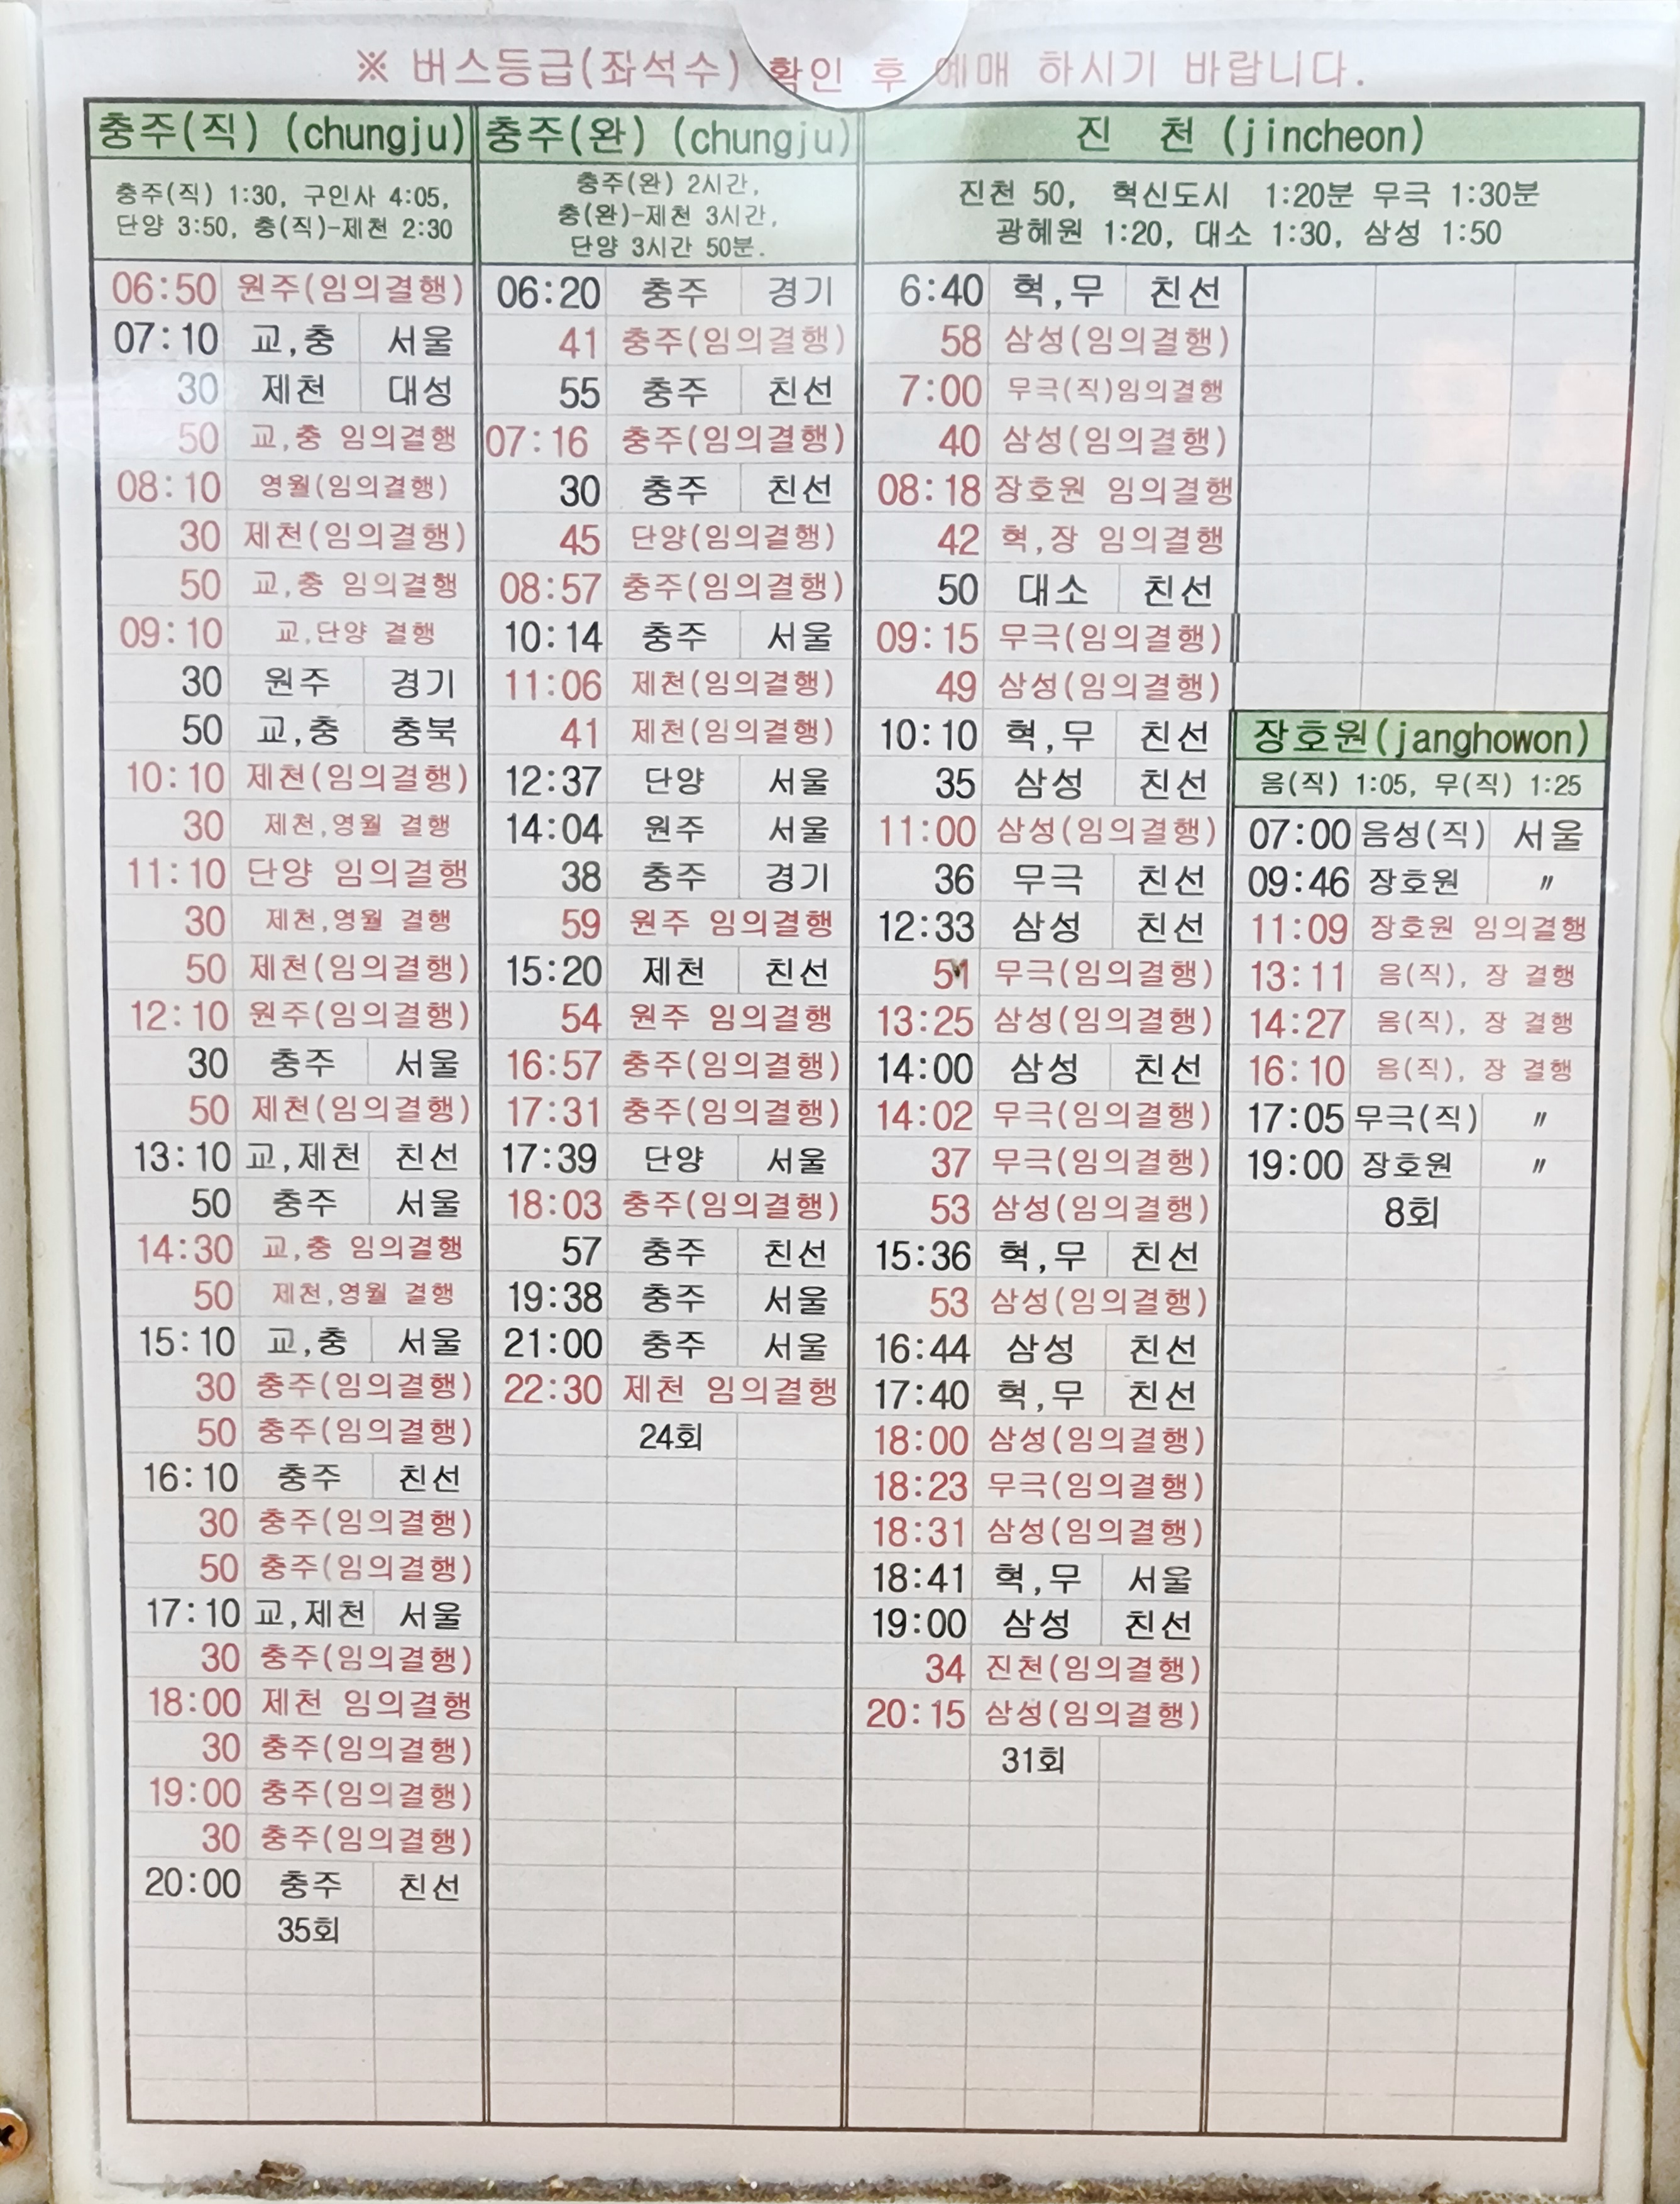 ※ 버스등급(좌석수) 확인 후 예매 하시기 바랍니다.
충주(직) (chungju)
충주(직) 1:30, 구인사 4:05,
단양 3:50, 충(직)-제천 2:30
06:50 원주(임의결행)
07:10 교,충 서울
30 제천 대성
50 교,충 임의결행
08:10 영월(임의결행)
30 제천(임의결행)
50 교,충 임의결행
09:10 교,단양 결행
30 원주 경기
50 교,충 충북
10:10 제천(임의결행)
30 제천,영월 결행
11:10 단양 임의결행
30 제천,영월 결행
50 제천(임의결행)
12:10 원주(임의결행)
30 충주 서울
50 제천(임의결행)
13:10 교,제천 친선
50 충주 서울
14:30 교,충 임의결행
50 제천,영월 결행
15:10 교,충 서울
30 충주(임의결행)
50 충주(임의결행)
16:10 충주 친선
30 충주(임의결행)
50 충주(임의결행)
17:10 교,제천 서울
30 충주(임의결행)
18:00 제천 임의결행
30 충주(임의결행)
19:00 충주(임의결행)
30 충주(임의결행)
20:00 충주 친선
35회
충주(완) (chungju)
충주(완) 2시간,
충(완)-제천 3시간,
단양 3시간 50분.
06:20 충주 경기
41 충주(임의결행)
55 충주 친선
07:16 충주(임의결행)
30 충주 친선
45 단양(임의결행)
08:57 충주(임의결행)
10:14 충주 서울
11:06 제천(임의결행)
41 제천(임의결행)
12:37 단양 서울
14:04 원주 서울
38 충주 경기
59 원주 임의결행
15:20 제천 친선
54 원주 임의결행
16:57 충주(임의결행)
17:31 충주(임의결행)
17:39 단양 서울
18:03 충주(임의결행)
57 충주 친선
19:38 충주 서울
21:00 충주 서울
22:30 제천 임의결행
24회
진 천 (jincheon)
진천 50, 혁신도시 1:20분 무극 1:30분
광혜원 1:20, 대소 1:30, 삼성 1:50
6:40 혁,무 친선
58 삼성(임의결행)
7:00 무극(직)임의결행
40 삼성(임의결행)
08:18 장호원 임의결행
42 혁,장 임의결행
50 대소 친선
09:15 무극(임의결행)
49 삼성(임의결행)
10:10 혁,무 친선
35 삼성 친선
11:00 삼성(임의결행)
36 무극 친선
12:33 삼성 친선
51 무극(임의결행)
13:25 삼성(임의결행)
14:00 삼성 친선
14:02 무극(임의결행)
37 무극(임의결행)
53 삼성(임의결행)
15:36 혁,무 친선
53 삼성(임의결행)
16:44 삼성 친선
17:40 혁,무 친선
18:00 삼성(임의결행)
18:23 무극(임의결행)
18:31 삼성(임의결행)
18:41 혁,무 서울
19:00 삼성 친선
34 진천(임의결행)
20:15 삼성(임의결행)
31회
장호원(janghowon)
음(직) 1:05, 무(직) 1:25
07:00 음성(직) 서울
09:46 장호원 〃
11:09 장호원 임의결행
13:11 음(직), 장 결행
14:27 음(직), 장 결행
16:10 음(직), 장 결행
17:05 무극(직) 〃
19:00 장호원 〃
8회